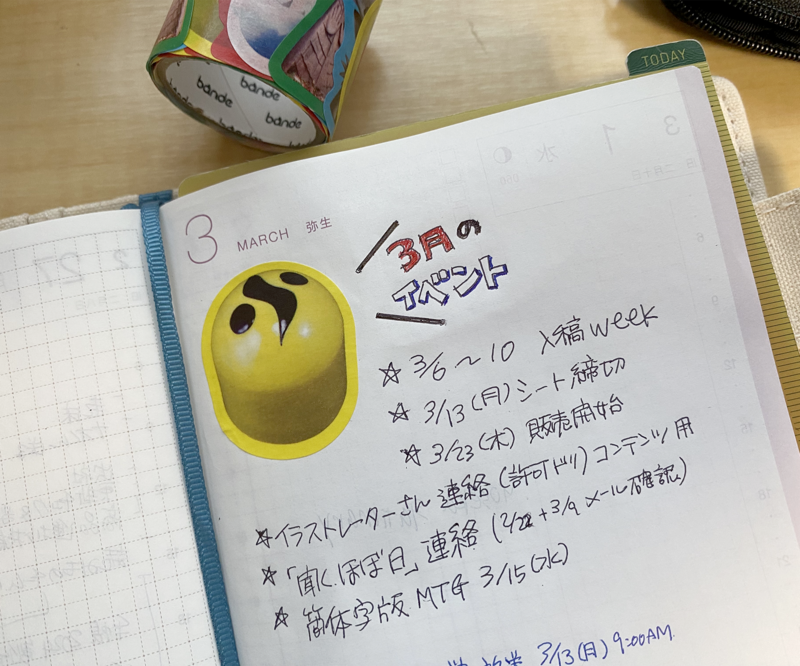 bande
bande
bande
TODAY
3 MARCH 弥生
3月の
イベント
☆ 3/6 〜 10 入稿 week
☆ 3/13 (月) シート締切
☆ 3/23 (木) 販売開始
☆ イラストレーターさん 連絡 (許可ドリ) コンテンツ用
☆ 「聞くほぼ日」連絡 (2/22 + 3/9 メール確認)
☆ 簡体字版 MTG 3/15 (水)
3/13 (月) 9:00AM